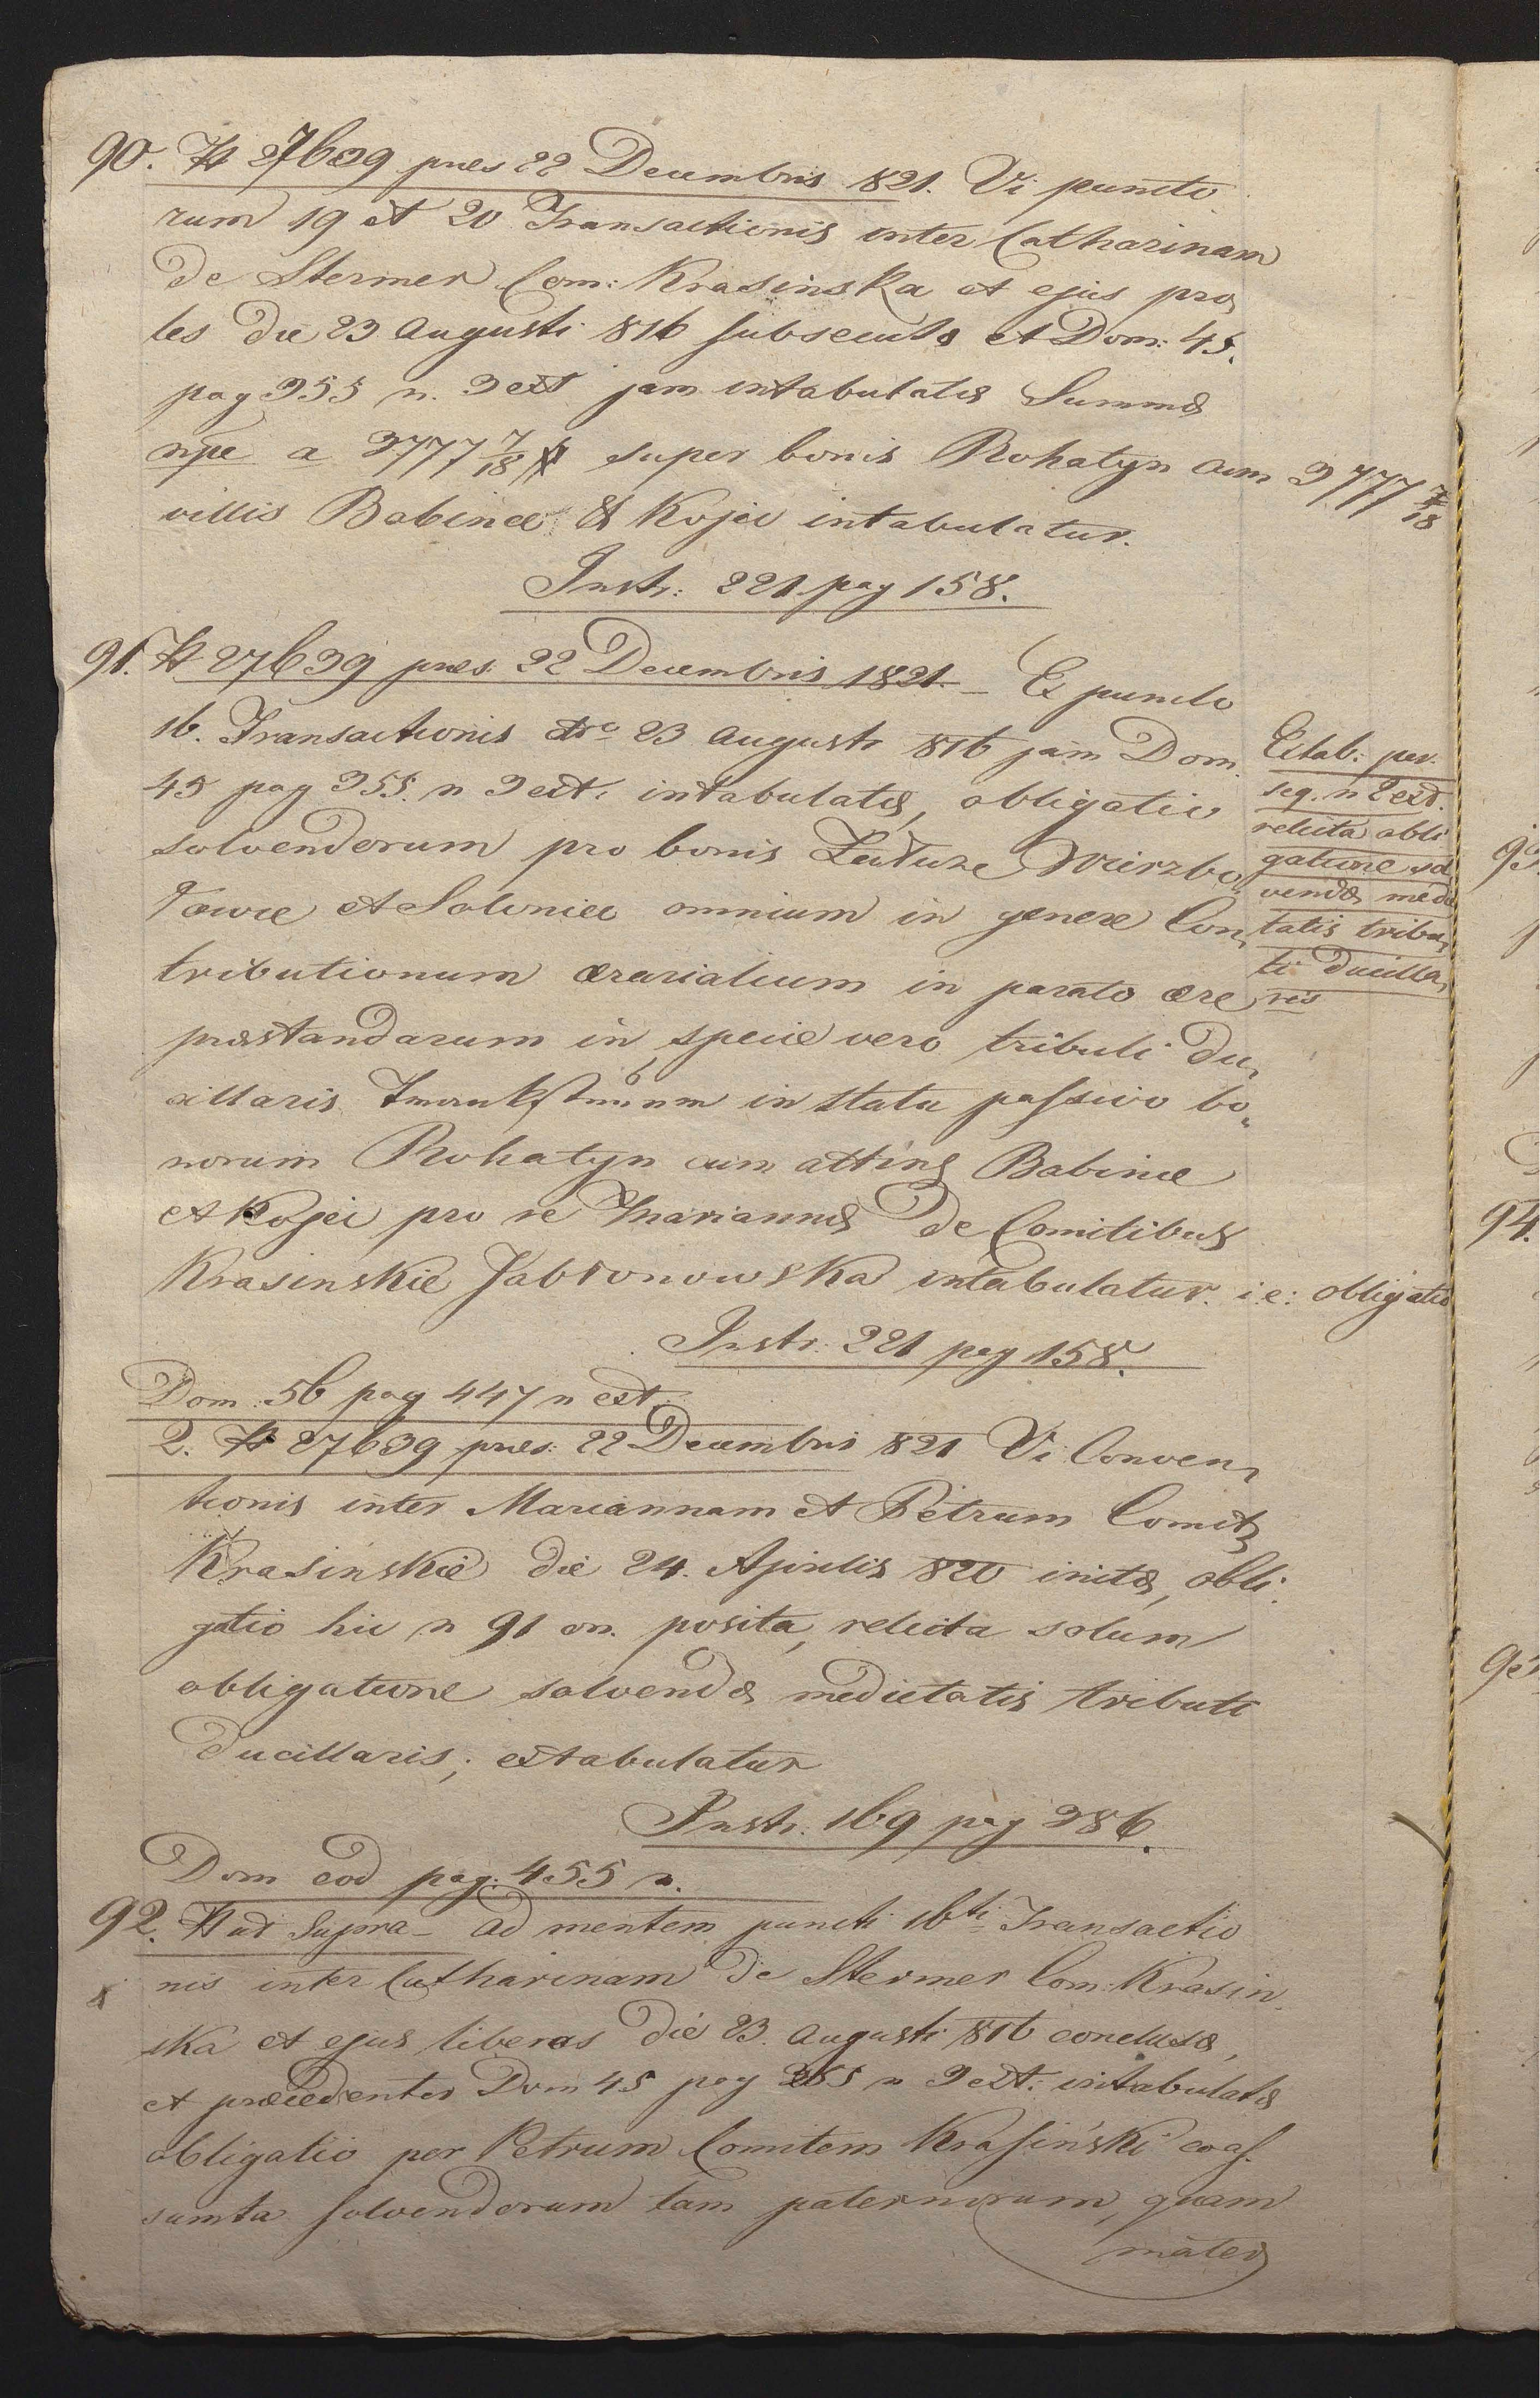 90. # 27639 præs 22 Decembris 821. Vi puncto
rum 19 et 20 Transactionis inter Catharinam
de Stermer Com: Krasinska et ejus pro„
les die 23 Augusti 816 subsecutæ et Dom: 45.
pag 355 n. 3 ext jam intabulatæ Summæ
npe a 3777 7/18 # super bonis Rohatyn cum
villis Babince & Kojci intabulatur.
3777 7/18
Instr: 221 pag 158.
91. # 27639 præs. 22 Decembris 1821. – Ex puncto
16. Transactionis dto 23 Augusti 816 jam Dom.
45 pag 355. n 3 ext: intabulatæ, obligatio
solvendorum pro bonis Wierzbo„
łowce et Soloniec omnium in genere Con„
tributionum ærarialium in parato ære
præstandarum in specie vero tributi du„
cillaris in statu passivo bo„
norum Rohatyn cum attins Babince
et Kojci pro re Mariannæ de Comitibus
Krasinskie Jabłonowska intabulatur. i.e: obligatio
Extab: per.
seq. n 2 ext.
relicta obli
gatione sol
vendæ medie
tatis tribu„
ti ducilla„
ris
Instr: 221 pag 158.
Dom: 56 pag 447 n ext:
2. # 27639 præs: 22 Decembris 821 Vi Conven„
tionis inter Mariannam et Petrum Comites
Krasinskie die 24. Aprilis 820 initæ, obli„
gatio hic n 91 on. posita, relicta solum
obligatione solvendæ medietatis tributi
ducillaris; extabulatur
Instr. 169 pag 386.
Dom eod pag. 455 n.
92. # ut supra – ad mentem puncti 16ti Transactio
nis inter Catharinam de Stermer Com: Krasin„
ska et ejus liberos die 23. Augusti 816 conclusæ,
et præcedenter Dom 45 pag 355 n 3 ext: intabulatæ
obligatio per Petrum Comitem Krasiński coas„
sumta solvendorum tam paternorum, quam
mater„